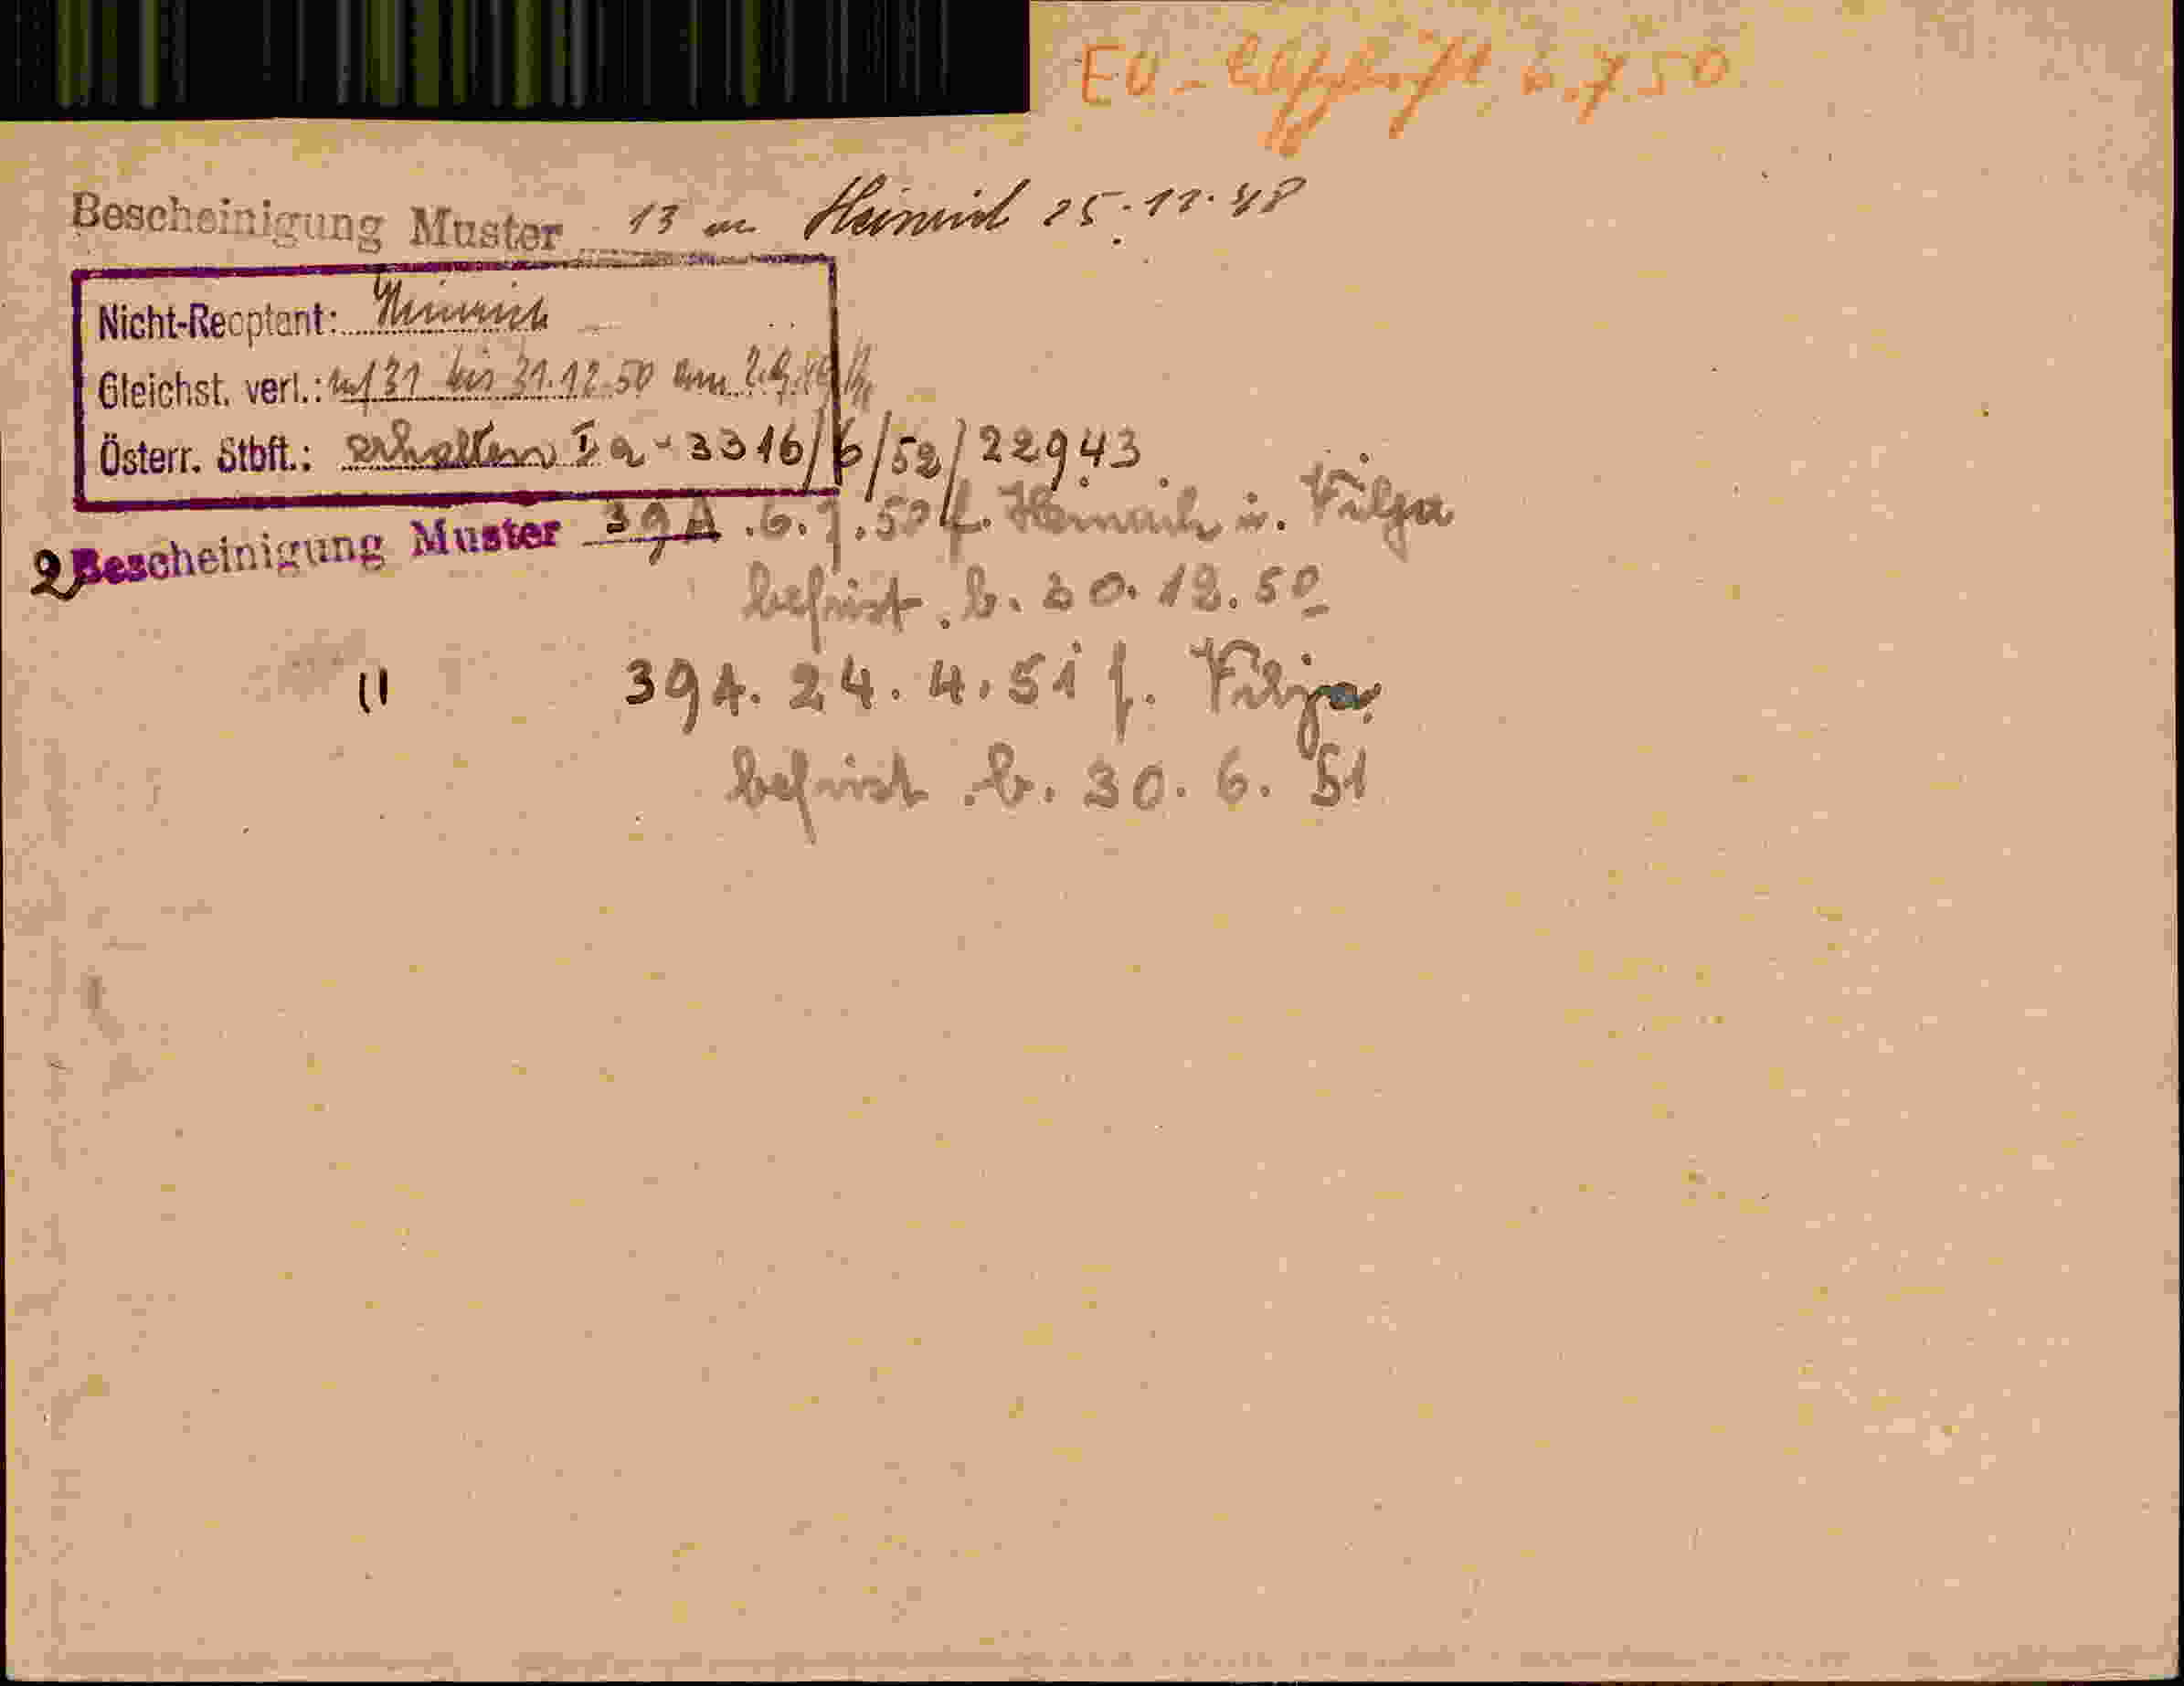 EU - 6.7.50
Bescheinigung Muster 13 an Heinrich 25.11.48
Nicht-Reoptant: Heinrich
Gleichst. verl.: auf 31 bis 31.12.50 am
Österr. Stbft.: erhalten Ia-3316/6/52/22943
2) Bescheinigung Muster 39A. 6.7.50 f. Heinrich u. Filja
befrist. b. 30.12.50
" 39A. 24.4.51 f. Filja
befrist. b. 30.6.51